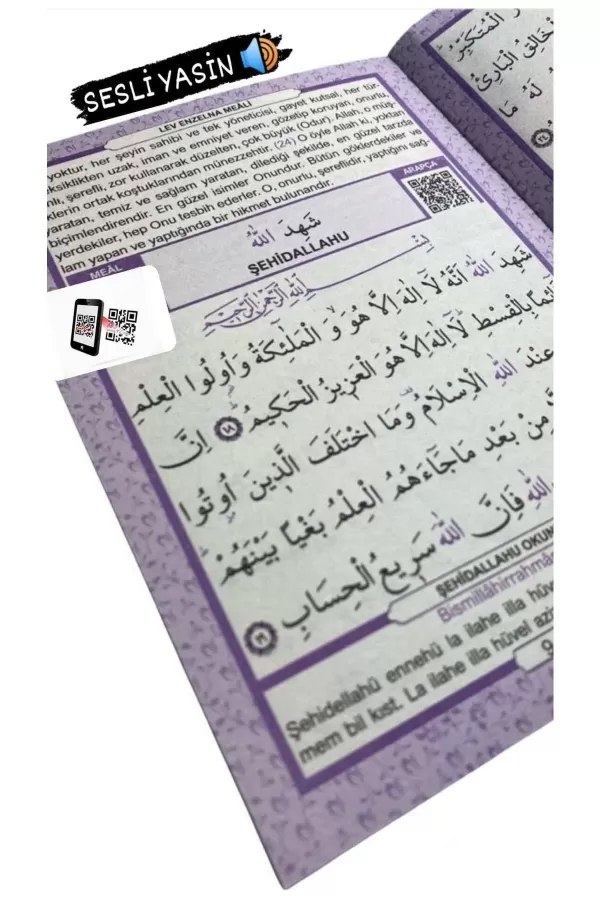 SESLİ YASİN
LEV ENZELNA MEÂLİ
yoktur, her şeyin sahibi ve tek yöneticisi, gayet kutsal, her tür-
eksiklikten uzak, iman ve emniyet veren, gözetip koruyan, onurlu
şerefli, zor kullanarak düzelten, çok büyük (Odur). Allah, o müş-
iklerin ortak koştuklarından münezzehtir. (24) O öyle Allah ki, yoktan
yaratan, temiz ve sağlam yaratan, dilediği şekilde, en güzel tarzda
biçimlendirendir. En güzel isimler Onundur. Bütün göklerdekiler ve
yerdekiler, hep Onu tesbih ederler. O, onurlu, şereflidir, yaptığını sağ-
lam yapan ve yaptığında bir hikmet bulunandır.
MEÂL
ARAPÇA
شَهِدَ اللّٰهُ
ŞEHİDALLAHU
بِسْمِ اللّٰهِ الرَّحْمٰنِ الرَّحِيمِ
شَهِدَ اللّٰهُ اَنَّهُ لَٓا اِلٰهَ اِلَّا هُوَۙ وَالْمَلٰٓئِكَةُ وَاُولُوا الْعِلْمِ
قَٓائِماً بِالْقِسْطِۜ لَٓا اِلٰهَ اِلَّا هُوَ الْعَزِيزُ الْحَكِيمُۜ ﴿١٨﴾ اِنَّ
عِنْدَ اللّٰهِ الْاِسْلَامُ وَمَا اخْتَلَفَ الَّذِينَ اُوتُوا
مِنْ بَعْدِ مَا جَٓاءَهُمُ الْعِلْمُ بَغْياً بَيْنَهُمْۜ
اللّٰهِ فَاِنَّ اللّٰهَ سَرِيعُ الْحِسَابِ ﴿١٩﴾
ŞEHİDALLAHU OKUN
Bismillâhirrahmâ
Şehidellahü ennehü la ilahe illa hüv
mem bil kıst. La ilahe illa hüvel azi
9
الْمُتَكَبِّرُۜ
الْخَالِقُ الْبَارِئُ
لَهُ مَا